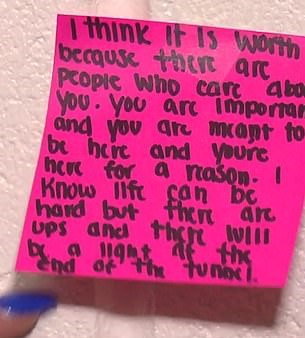 I think it is worth
because there are
people who care abo
you. you are importan
and you are meant to
be here and youre
here for a reason. I
know life can be
hard but there are
ups and there will
be a light at the
end of the tunnel.